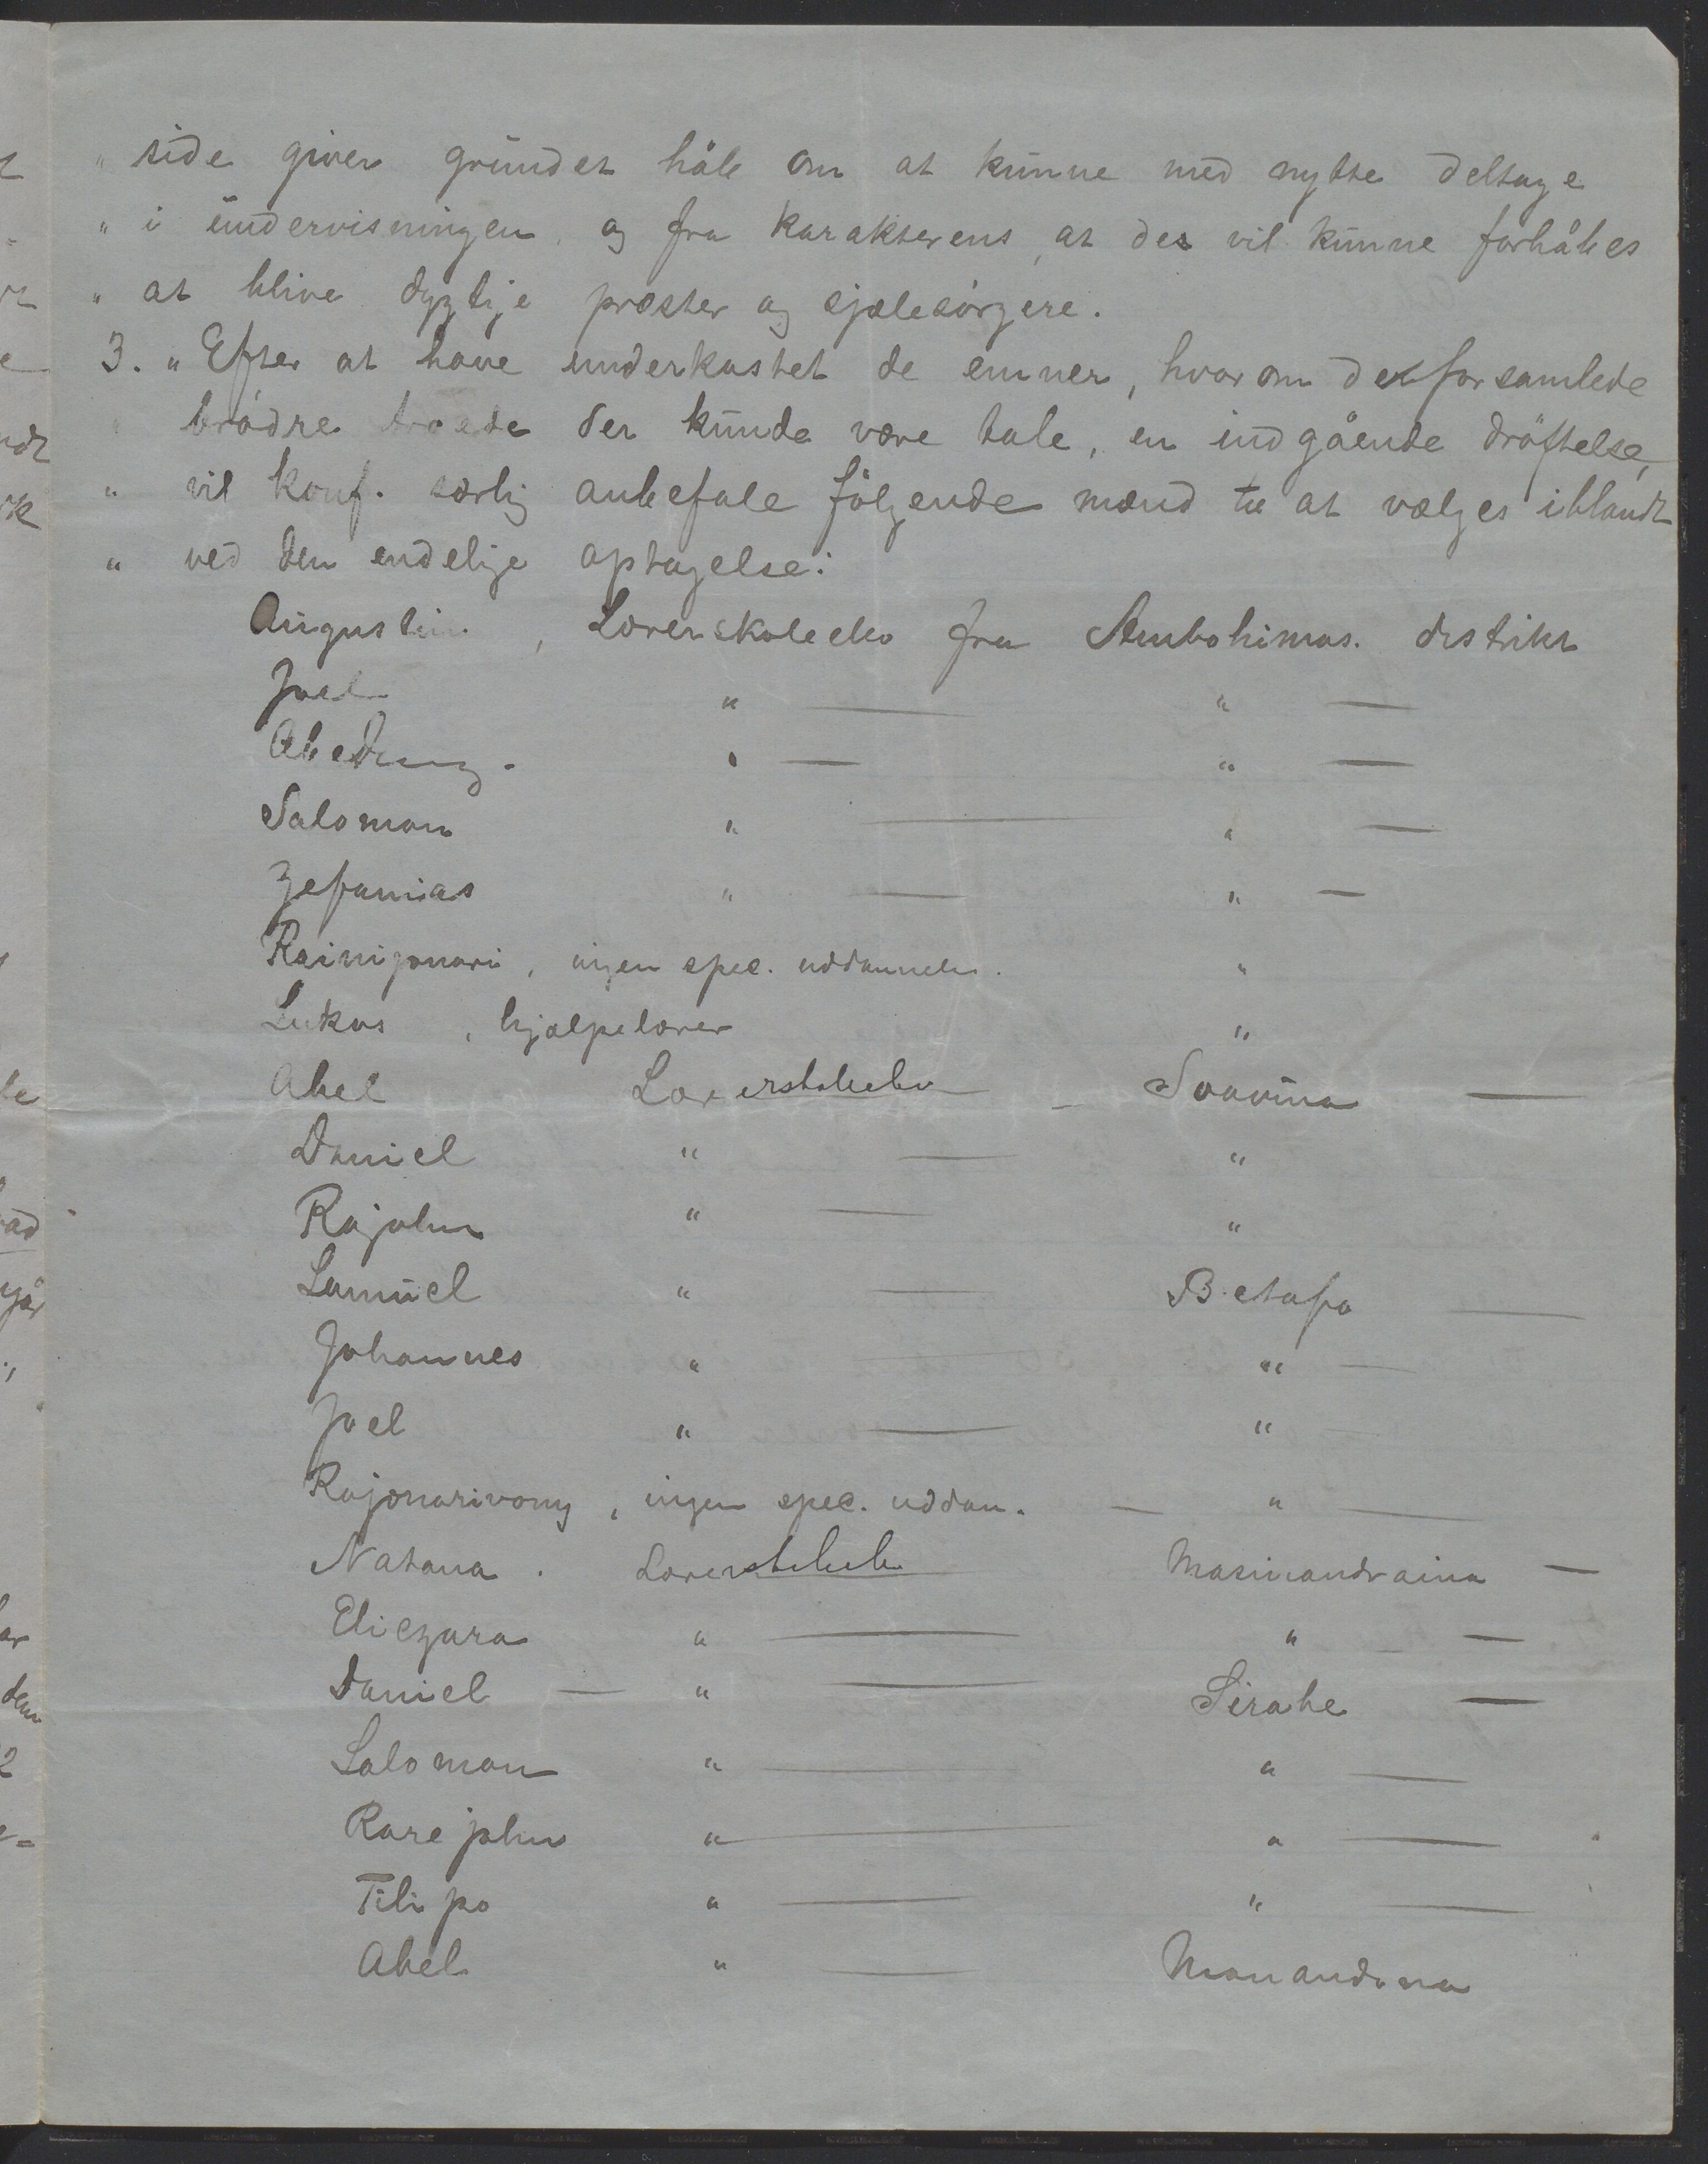 " side giver grundet håb om at kunne med nytte deltage
" i undervisningen, og fra karakterens, at der vil kunne forhåbes
" at blive dygtige præster og sjælesörgere.
3. " Efter at have underkastet de emner, hvorom de forsamlede
brödre troede der kunde være tale, en indgående dröftelse,
" vil konf. særlig anbefale fölgende mænd til at vælges iblandt
" ved den endelige optagelse:
Augustin, Lærerskoleelev fra Ambohimas. distrikt
Joel " — " —
Abednego. " — " —
Salomon " — " —
Zefanias " — " —
Rainijonari, ingen spec. uddannelse. "
Lukas, hjælpelærer "
Abel Lærerskoleelev — Soavina —
Daniel " — "
Rajohn " — "
Samuel " — Betafo —
Johannes " — " —
Joel " — "
Rajonarivony, ingen spec. uddan. — " —
Natana. Lærerskoleelev Masinandraina —
Eliezara " — " —
Daniel — " — Sirabe —
Salomon " — " —
Rarejohn " — " —
Filipo " — " —
Abel " — Manandona